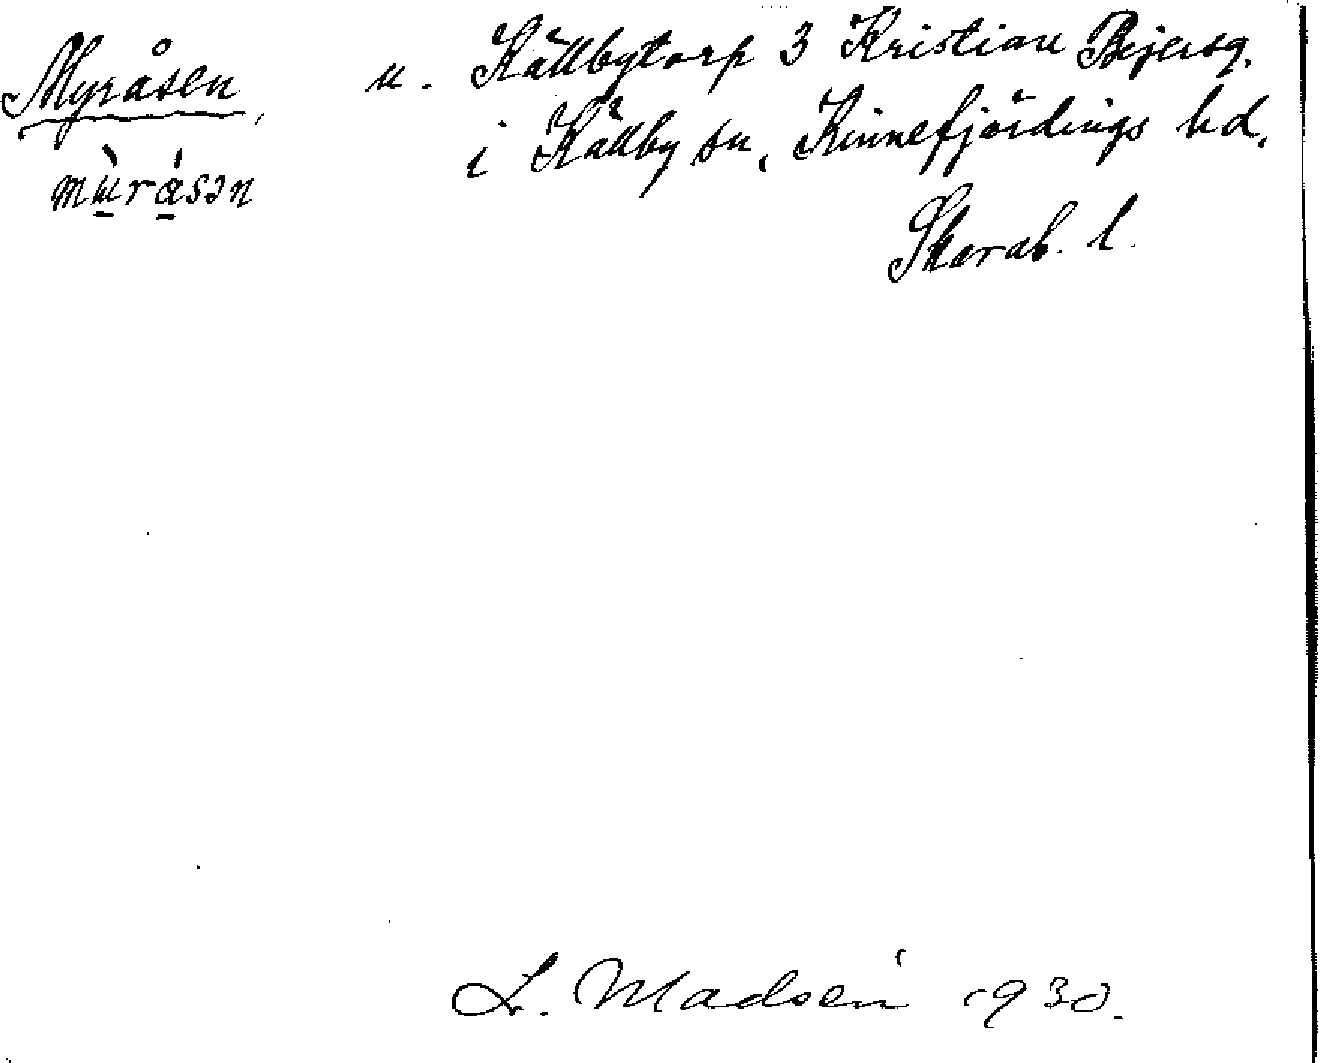 Myråsen, u. Källbytorp 3 Kristian Bejersg.
i Källby sn, Kinnefjärdings hd.
mùråsən
Skarab. l.
L. Madsen 1930.